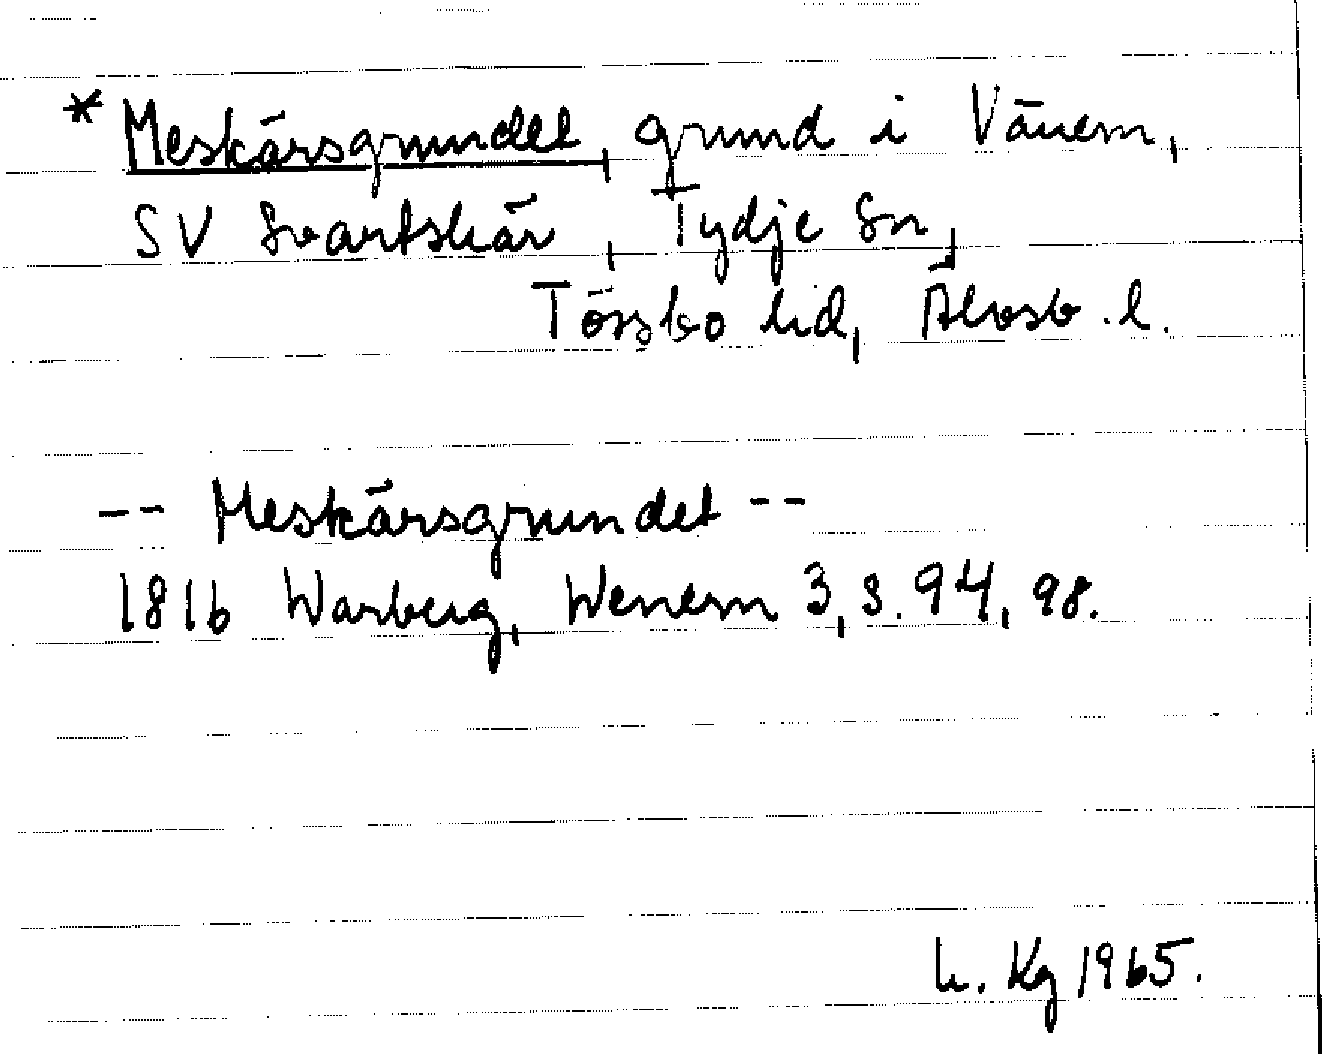 * Meskärsgrundet, grund i Vänern,
SV Svartskär, Tydje sn,
Tössbo hd, Älvsb. l.
-- Meskärsgrundet --
1816 Warberg, Wenern 3, s. 94, 98.
h. Kg 1965.